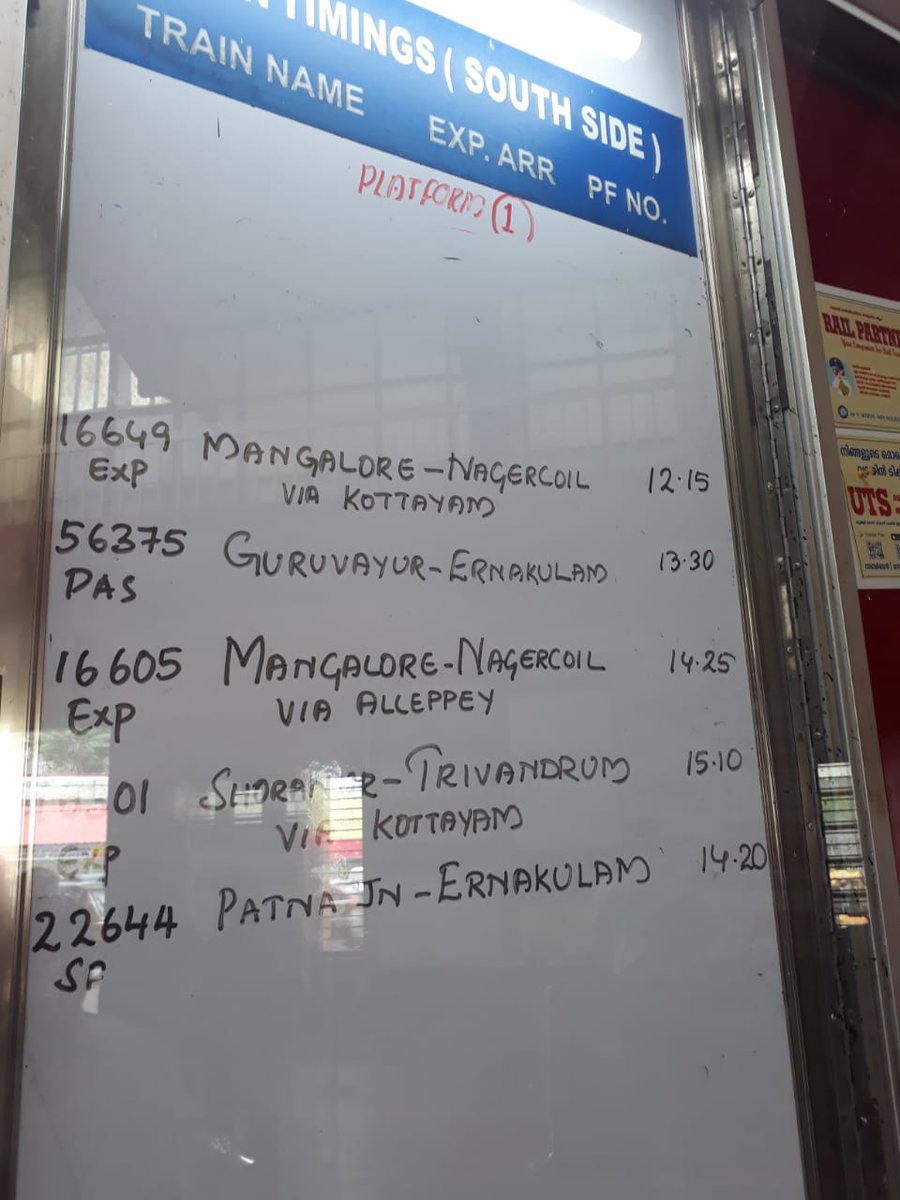 TIMINGS ( SOUTH SIDE )
TRAIN NAME EXP. ARR PF NO.
PLATFORM (1)
16649 MANGALORE-NAGERCOIL 12.15
EXP VIA KOTTAYAM
56375 GURUVAYUR-ERNAKULAM 13.30
PAS
16605 MANGALORE-NAGERCOIL 14.25
EXP VIA ALLEPPEY
01 TRIVANDRUM 15.10
P VIA KOTTAYAM
22644 PATNA JN-ERNAKULAM 14.20
SF
RAIL PARTNE
Your Companion for Rail
നിങ്ങളുടെ
UTS